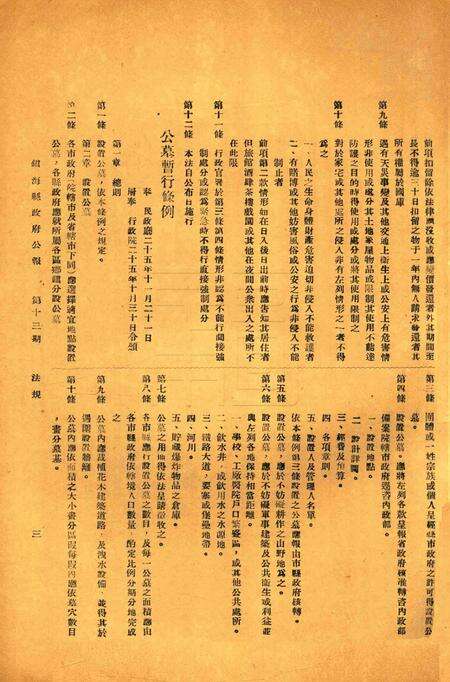 前項扣留除依法律應沒收或應變價發還者外其期間至
長不得逾三十日扣留之物于一年內無人請求發還者其
所有權屬於國庫
第九條 遇有天災事變及其他交通上衛生上或公安上有危害情
形非使用或處分其土地家屋物品或限制其使用不能達
防護之目的時得使用或處分或將其使用限制之
第十條 對於家宅或其他處所之侵入非有左列情形之一者不得
爲之
一、人民之生命身體財產危害迫切非侵入不能救護者
二、有賭博或其他妨害風俗或公安之行爲非侵入不能
制止者
前項第二款情形如在日入後日出前時應告知其居住者
但旅館酒肆茶樓戲園或其他在夜間公衆出入之處所不
在此限
第十一條 行政官署於第三條第四條情形非認爲不能行間接強
制處分或認爲緊急時不得行直接強制處分
第十二條 本法自公布日施行
公墓暫行條例
奉 民政廳二十五年十一月二十一日
層奉 行政院二十五年十月三十日令頒
第一章 總則
第一條 設置公墓，依本條例之規定。
第二章 設置公墓
第二條 各市政府（院轄市及省轄市下同）應選擇適宜地點設置
公墓，各縣政府應就所屬各區鄉鎮分設公墓
第三條 團體或一姓宗族或個人呈經縣市政府之許可得設置公
墓。
第四條 設置公墓，應將左列各款呈報省政府核准轉咨內政部
備案院轄市政府逕咨內政部。
一 設置地點。
二 設計詳圖。
三 經費及預算。
四 各項章則。
五 設置人及管理人名單。
依本條例第三條設置之公墓應報由市縣政府核轉。
第五條 設置公墓，應於不妨礙耕作之山野地爲之。
第六條 設置公墓，應於不妨礙軍事建築及公共衛生或利益並
與左列各地保持相當距離。
一、學校、工廠醫院戶口繁盛區，或其他公共處所。
二、飲水井，或飲用水之水源地。
三、鐵路大道，要塞或堡壘地帶。
四、河川。
五、貯藏爆炸物品之倉庫。
第七條 公墓之用地得依法呈請徵收之。
第八條 各市縣應行設置公墓之數目，及每一公墓之面積應由
各市縣政府依轄境人口數量，酌定比例分期分地完成
之
第九條 公墓內應栽植花木建築道路，及洩水設備，並得其於
週圍設置牆籬。
第十條 公墓內應依面積之大小畫分區段每段內應依墓穴數目
，畫分墓基。
鎮海縣政府公報 第十三期 法規 三